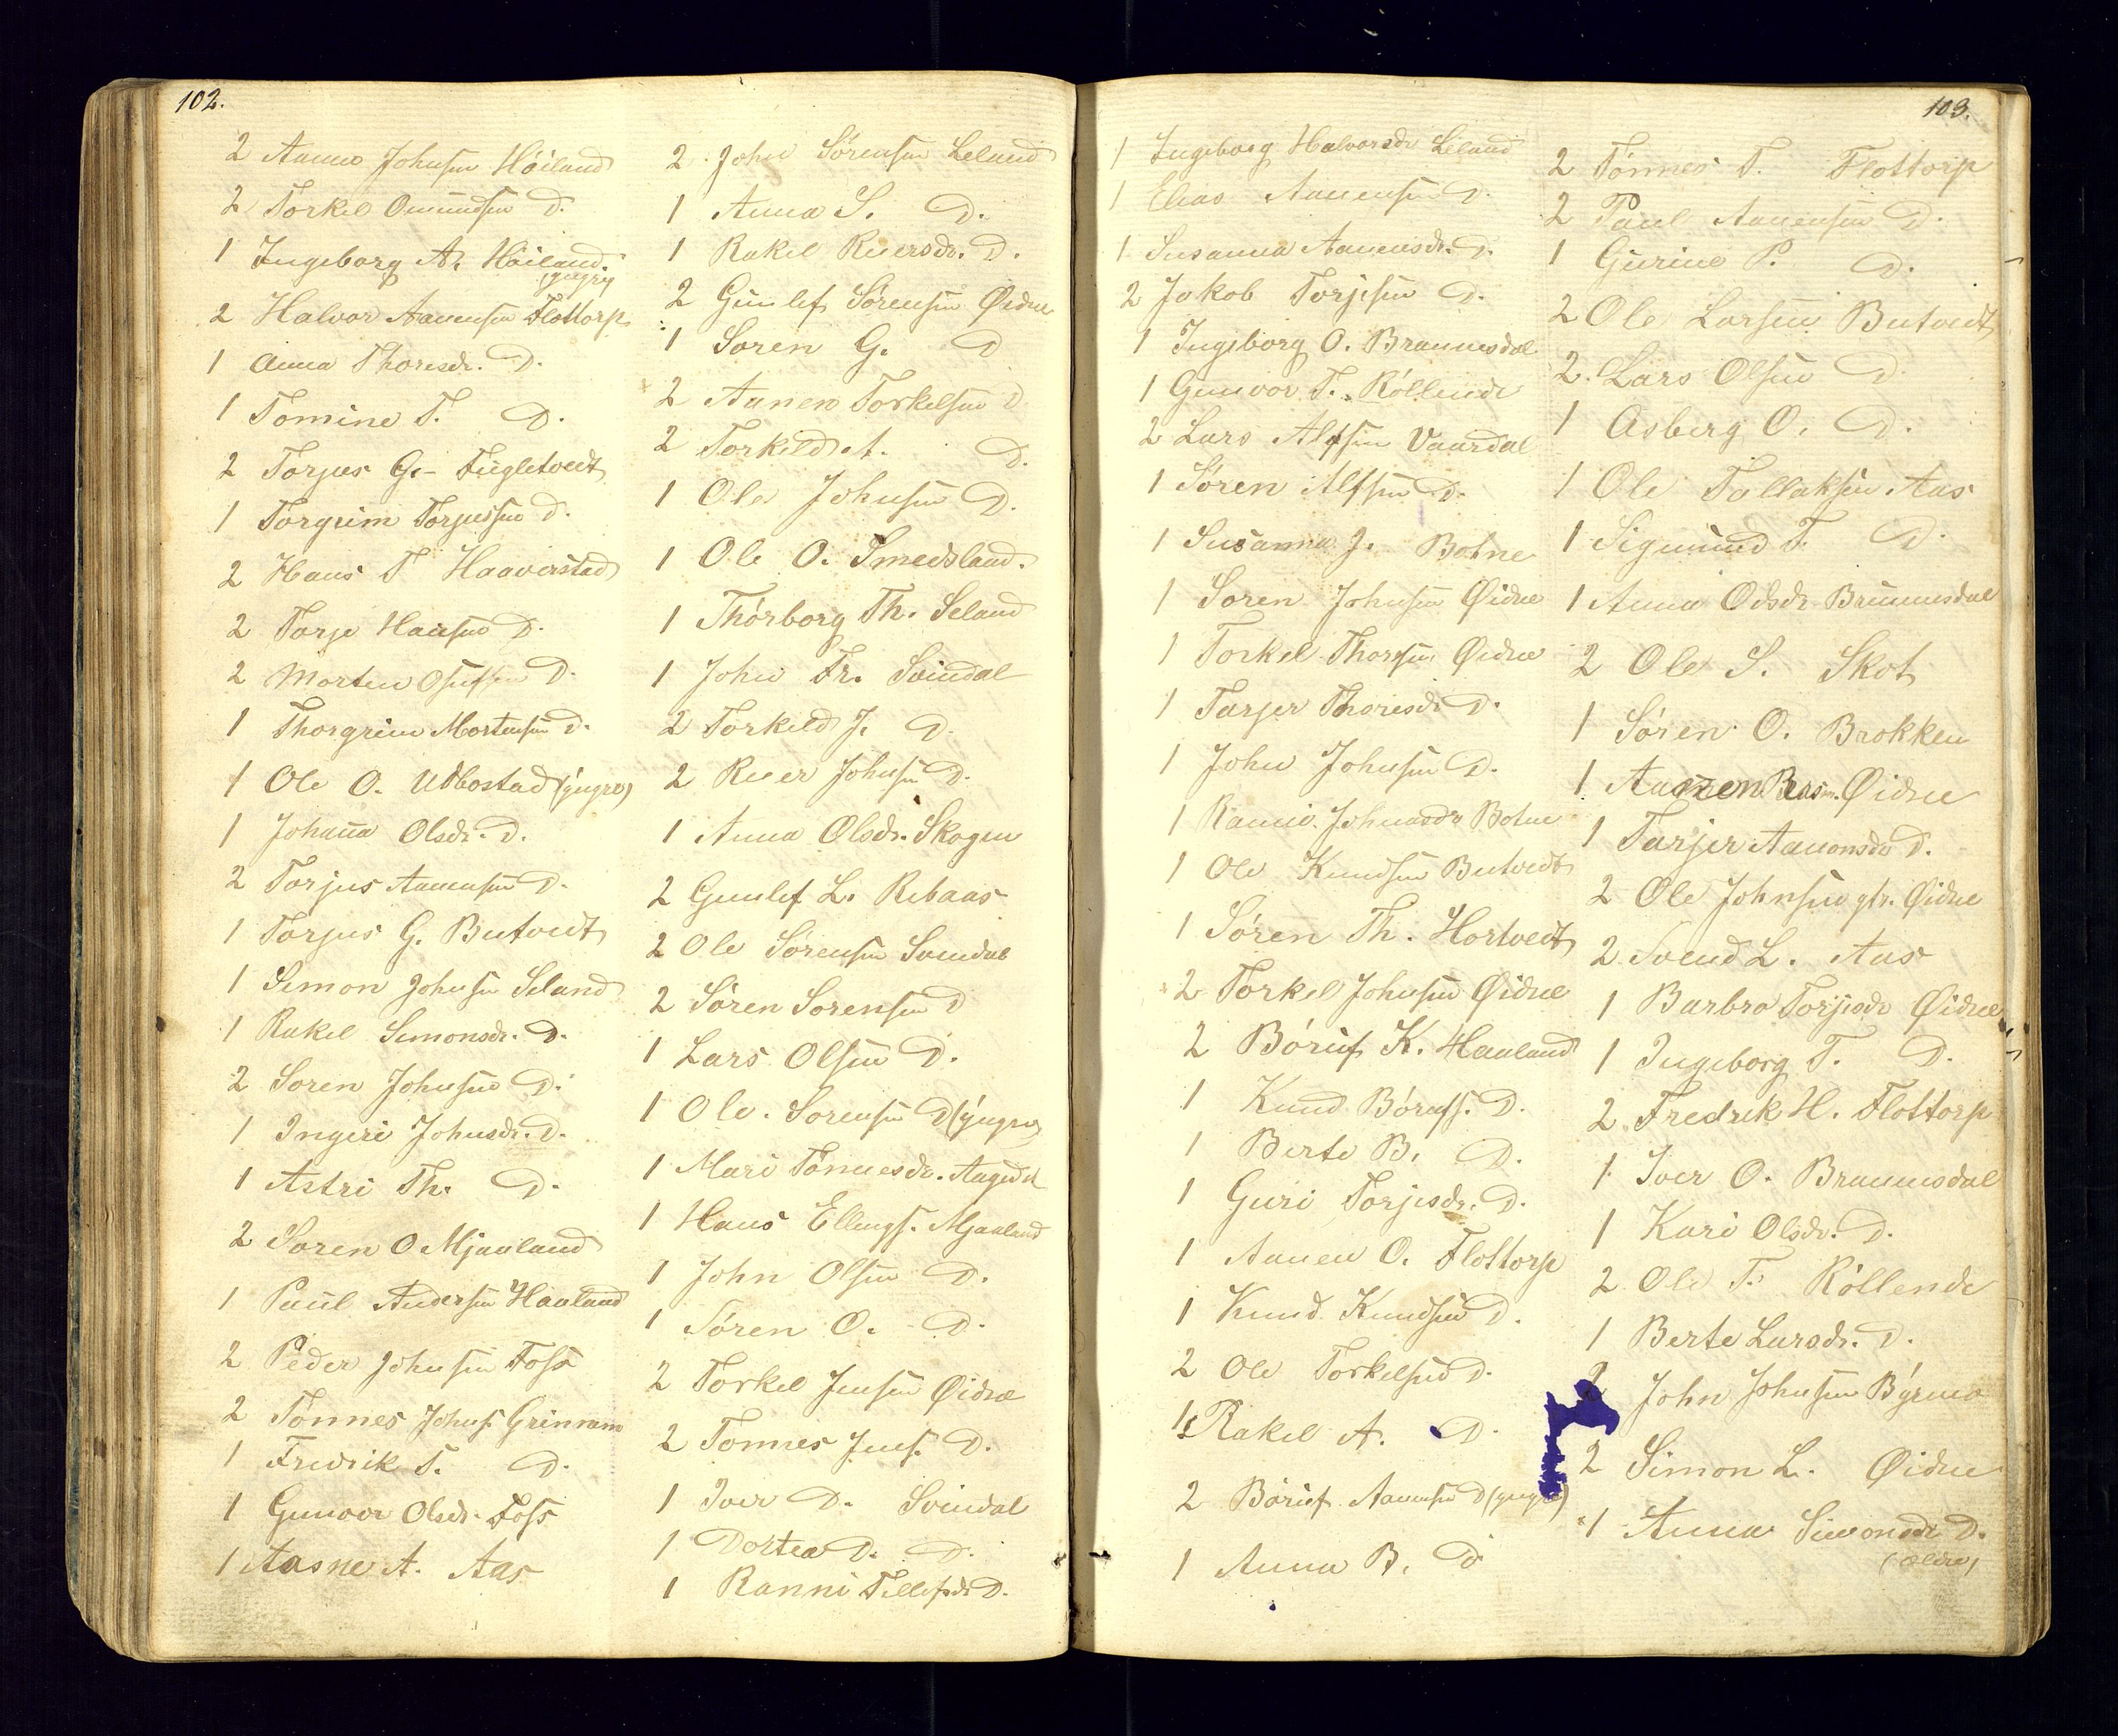 102.
2 Aanen Johnsen Høiland
2 Torkel Omundsen D.
1 Ingeborg A. Høiland
(yngre)
2 Halvor Aanensen Flottorp
1 Anna Thoresdr. D.
1 Tomine T. D.
2 Torjus G. Fugletvedt
1 Torgrim Torjussen D.
2 Hans T Haaverstad
2 Torje Hansen D.
2 Morten Osufsen D.
1 Thorgrim Mortensen D.
1 Ole O. Udbostad (yngre)
1 Johana Olsdr. D.
2 Torjus Aanensen D.
1 Torjus G. Butvedt
1 Simon Johnsen Seland
1 Rakel Simonsdr. D.
2 Soren Johnsen D.
1 Ingeri Johnsdr. D.
1 Astri Th. D.
2 Søren O Mjaaland
1 Paul Andersen Haaland
2 Peder Johnsen Foss
2 Tønnes Johns. Grinram
1 Fredrik T. D.
1 Gunvor Olsdr. Foss
1 Aasne A. Aas
2 John Sørensen Leland
1 Anna S. D.
1 Rakel Reiersdr. D.
2 Gunlef Sørensen Øidne
1 Soren G. D
2 Aanen Torkelsen D
2 Torkild A. D.
1 Ole Johnsen D.
1 Ole O. Smedsland.
1 Thørborg Th. Seland
1 John Fr. Svindal
2 Torkild J. D.
2 Reier Johnsen D.
1 Anna Olsdr. Skogen
2 Gunlef L. Ribaas
2 Ole Sørensen Svindal
2 Søren Sorensen D
1 Lars Olsen D.
1 Ole Sorensen D (yngre)
1 Mari Tønnesdr. Aagedal
1 Hans Ellings. Mjaaland
1 John Olsen D.
1 Søren O. D.
2 Torkel Jensen Øidne
2 Tonnes Jens. D.
1 Iver D. Svindal
1 Dortea D. D.
1 Ranni Tellefsdr D.
103.
1 Ingeborg Halvorsdr Leland
1 Elias Aanensen D.
1 Susanna Aanensdr. D.
2 Jakob Torjesen D.
1 Ingeborg O. Braunesdal
1 Gunvor T. Røllende
2 Lars Alfsen Vaardal
1 Søren Alfsen D.
1 Susanna J. Botne
1 Soren Johnsen Øidne
1 Torkel Thorsen Øidne
1 Tarjer Thoresdr D.
1 John Johnsen D.
1 Rannei Johnasdr Botne
1 Ole Knudsen Butvedt
1 Søren Th. Hortvedt
2 Torkel Johnsen Øidne
2 Børuf K. Haaland
1 Knud Børufs. D.
1 Berte B. D.
1 Guri Torjesdr. D.
1 Aanen O. Flottorp
1 Knud Knudsen D.
2 Ole Torkelsen D.
1 Rakel A. D.
2 Børuf Aanensen D (yngre)
1 Anna B. D
2 Tønnes T. Flottorp
2 Paul Aanensen D.
1 Gurine P. D.
2 Ole Larsen Butvedt
2 Lars Olsen D.
1 Asberg O. D.
1 Ole Tallaksen Aas
1 Sigmund T. D.
1 Anna Odsdr Braunesdal
2 Ole S. Skot
1 Søren O. Brokken
1 Aanen Rasm. Øidne
1 Tarjer Aanonsdr D.
2 Ole Johnsen gtr. Øidne
2 Svend L. Aas
1 Barbro Torjesdr Øidne
1 Ingeborg T. D.
2 Fredrek H. Flottorp
1 Iver O. Braunesdal
1 Kari Olsdr. D.
2 Ole T. Røllende
1 Berte Larsdr. D.
2 John Johnsen Byrmo
2 Simon L. Øidne
1 Anna Simonsdr D.
(ældre)